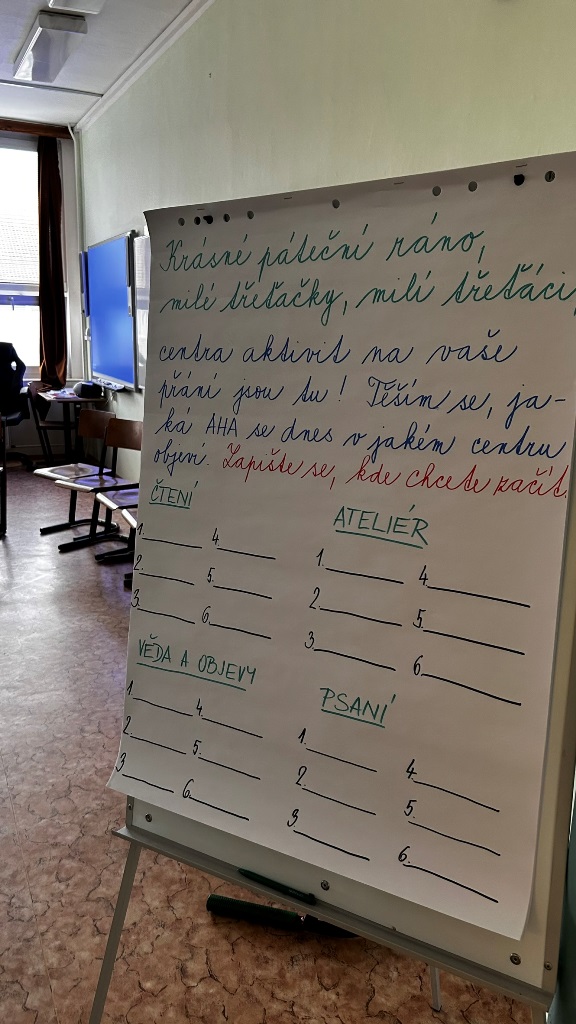 Krásné páteční ráno,
milé třeťačky, milí třeťáci,
centra aktivit na vaše
přání jsou tu! Těším se, ja-
ká AHA se dnes v jakém centru
objeví. Zapište se, kde chcete začít.
ČTENÍ
1. 4.
2. 5.
3. 6.
ATELIÉR
1. 4.
2. 5.
3. 6.
VĚDA A OBJEVY
1. 4.
2. 5.
3. 6.
PSANÍ
1. 4.
2. 5.
3. 6.